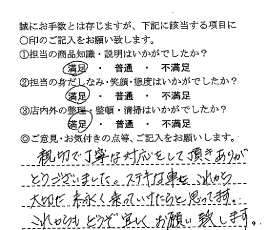 誠にお手数とは存じますが、下記に該当する項目に
○印のご記入をお願い致します。
①担当の商品知識・説明はいかがでしたか?
満足 ・ 普通 ・ 不満足
②担当の身だしなみ・笑顔・態度はいかがでしたか?
満足 ・ 普通 ・ 不満足
③店内外の整理・整頓・清掃はいかがでしたか?
満足 ・ 普通 ・ 不満足
◎ご意見・お気付きの点等、ご記入をお願いします。
親切で丁寧な対応をして頂きありが
とうございました。ステキな車をこれから
大切に末永く乗っていけたらと思ってます。
これからもどうぞ宜しくお願い致します。